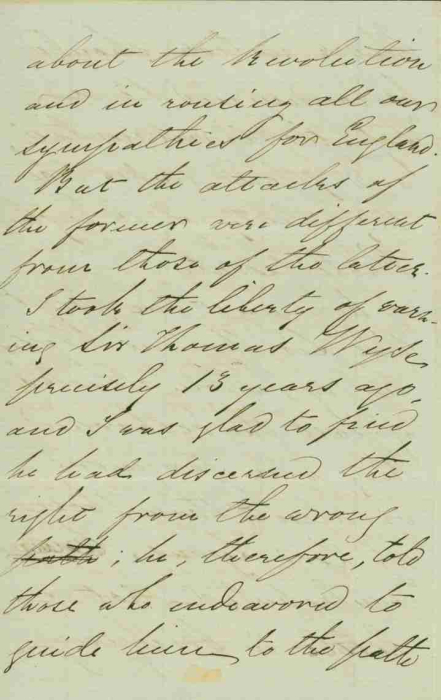 about the Revolution
and in rousing all our
sympathies for England.
But the attacks of
the former were different
from those of the latter.
I took the liberty of warn-
ing Sir Thomas Wyse
precisely 13 years ago,
and I was glad to find
he had discerned the
right from the wrong
path; he, therefore, told
those who endeavored to
guide him to the path